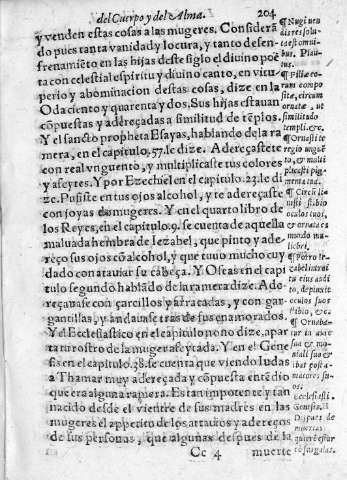 del Cuerpo y del Alma. 204
y venden estas cosas a las mugeres. Considerã
do pues tanta vanidad y locura, y tanto desen-
frenamiẽto en las hijas deste siglo el diuino poë
ta con celestial espiritu y diuino canto, en vitu-
perio y abominacion destas cosas, dize en la
Oda ciento y quarenta y dos. Sus hijas estauan
cõpuestas y adereçadas a similitud de tẽplos.
Y el sancto propheta Esayas, hablando de la ra
mera, en el capitulo, 57. le dize. Adereçastete
con real vnguento, y multiplicaste tus colores
y afeytes. Y por Ezechiel en el capitulo. 23. le di
ze. Pusiste en tus ojos alcohol, y te adereçaste
con joyas de mugeres. Y en el quarto libro de
los Reyes, en el capitulo. 9. se cuenta de aquella
maluada hembra de Iezabel, que pinto y ade-
reço sus ojos cõ alcohol, y que tuuo mucho cuy
dado con atauiar su cabeça. Y Oseas en el capi
tulo segundo hablãdo de la ramera dize. Ade
reçauase con çarcillos y arracadas, y con gar-
gantillas, y andauase tras de sus enamorados.
Y el Ecclesiastico en el capitulo nono dize, apar
ta tu rostro de la muger afeytada. Y en el Gene
sis en el capitulo. 28. se cuenta que viendo Iudas
a Thamar muy adereçada y cõpuesta entẽdio
que era alguna ramera. Es tan impotente y tan
nacido desde el vientre de sus madres en las
mugeres el appetito de los atauios y adereços
de sus personas, que algunas despues de la
Cc 4 muerte
¶ Nugi uen
dis res solu-
ta est omni-
bus. Plau-
tus.
¶ Filiæ eo-
rum compo
sitæ, circum
ornatæ, ut
similitudo
templi. &c.
¶ Ornasti te
regio ungue
to, & multi
plicasti pig
menta tua.
¶ Circũ li-
nisti stibio
oculos tuos,
& ornata es
mundo mu
liebri.
¶ Porro Ie-
zabel introi
tu eius audi
to, depinxit
oculos suos
stibio, &c.
¶ Ornaba-
tur in aure
sua & mo-
nili suo & i
bat post a-
matores su-
os.
Ecclesiasti.
Genesis.
Despues de
muertas
quieren estar